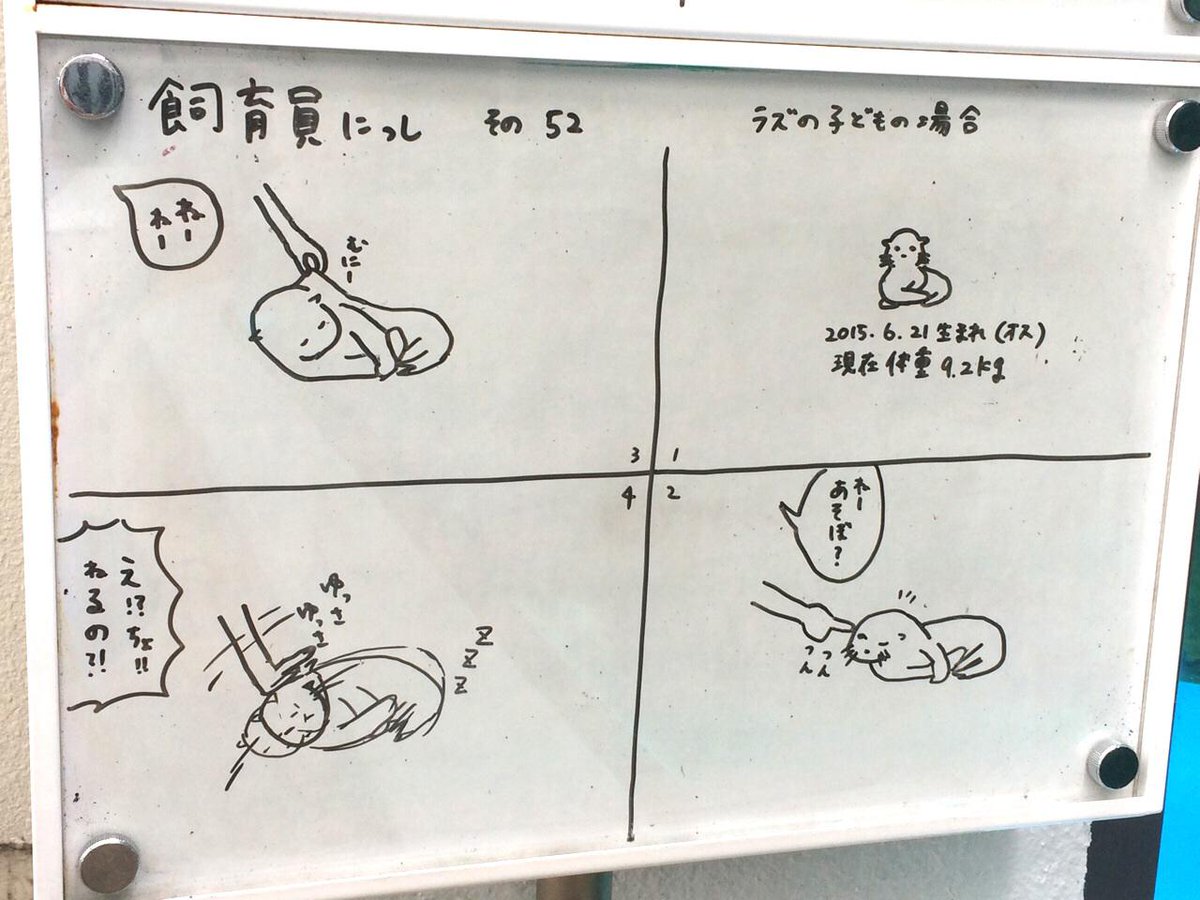 飼育員にっし その52
ラズの子どもの場合
2015.6.21生まれ(オス)
現在体重9.2kg
1
ねー
あそぼ?
つん
つん
2
ねー
ねー
むにー
3
え!?ちょ!!
ねるの?!
ゆっさ
ゆっさ
z
z
z
4